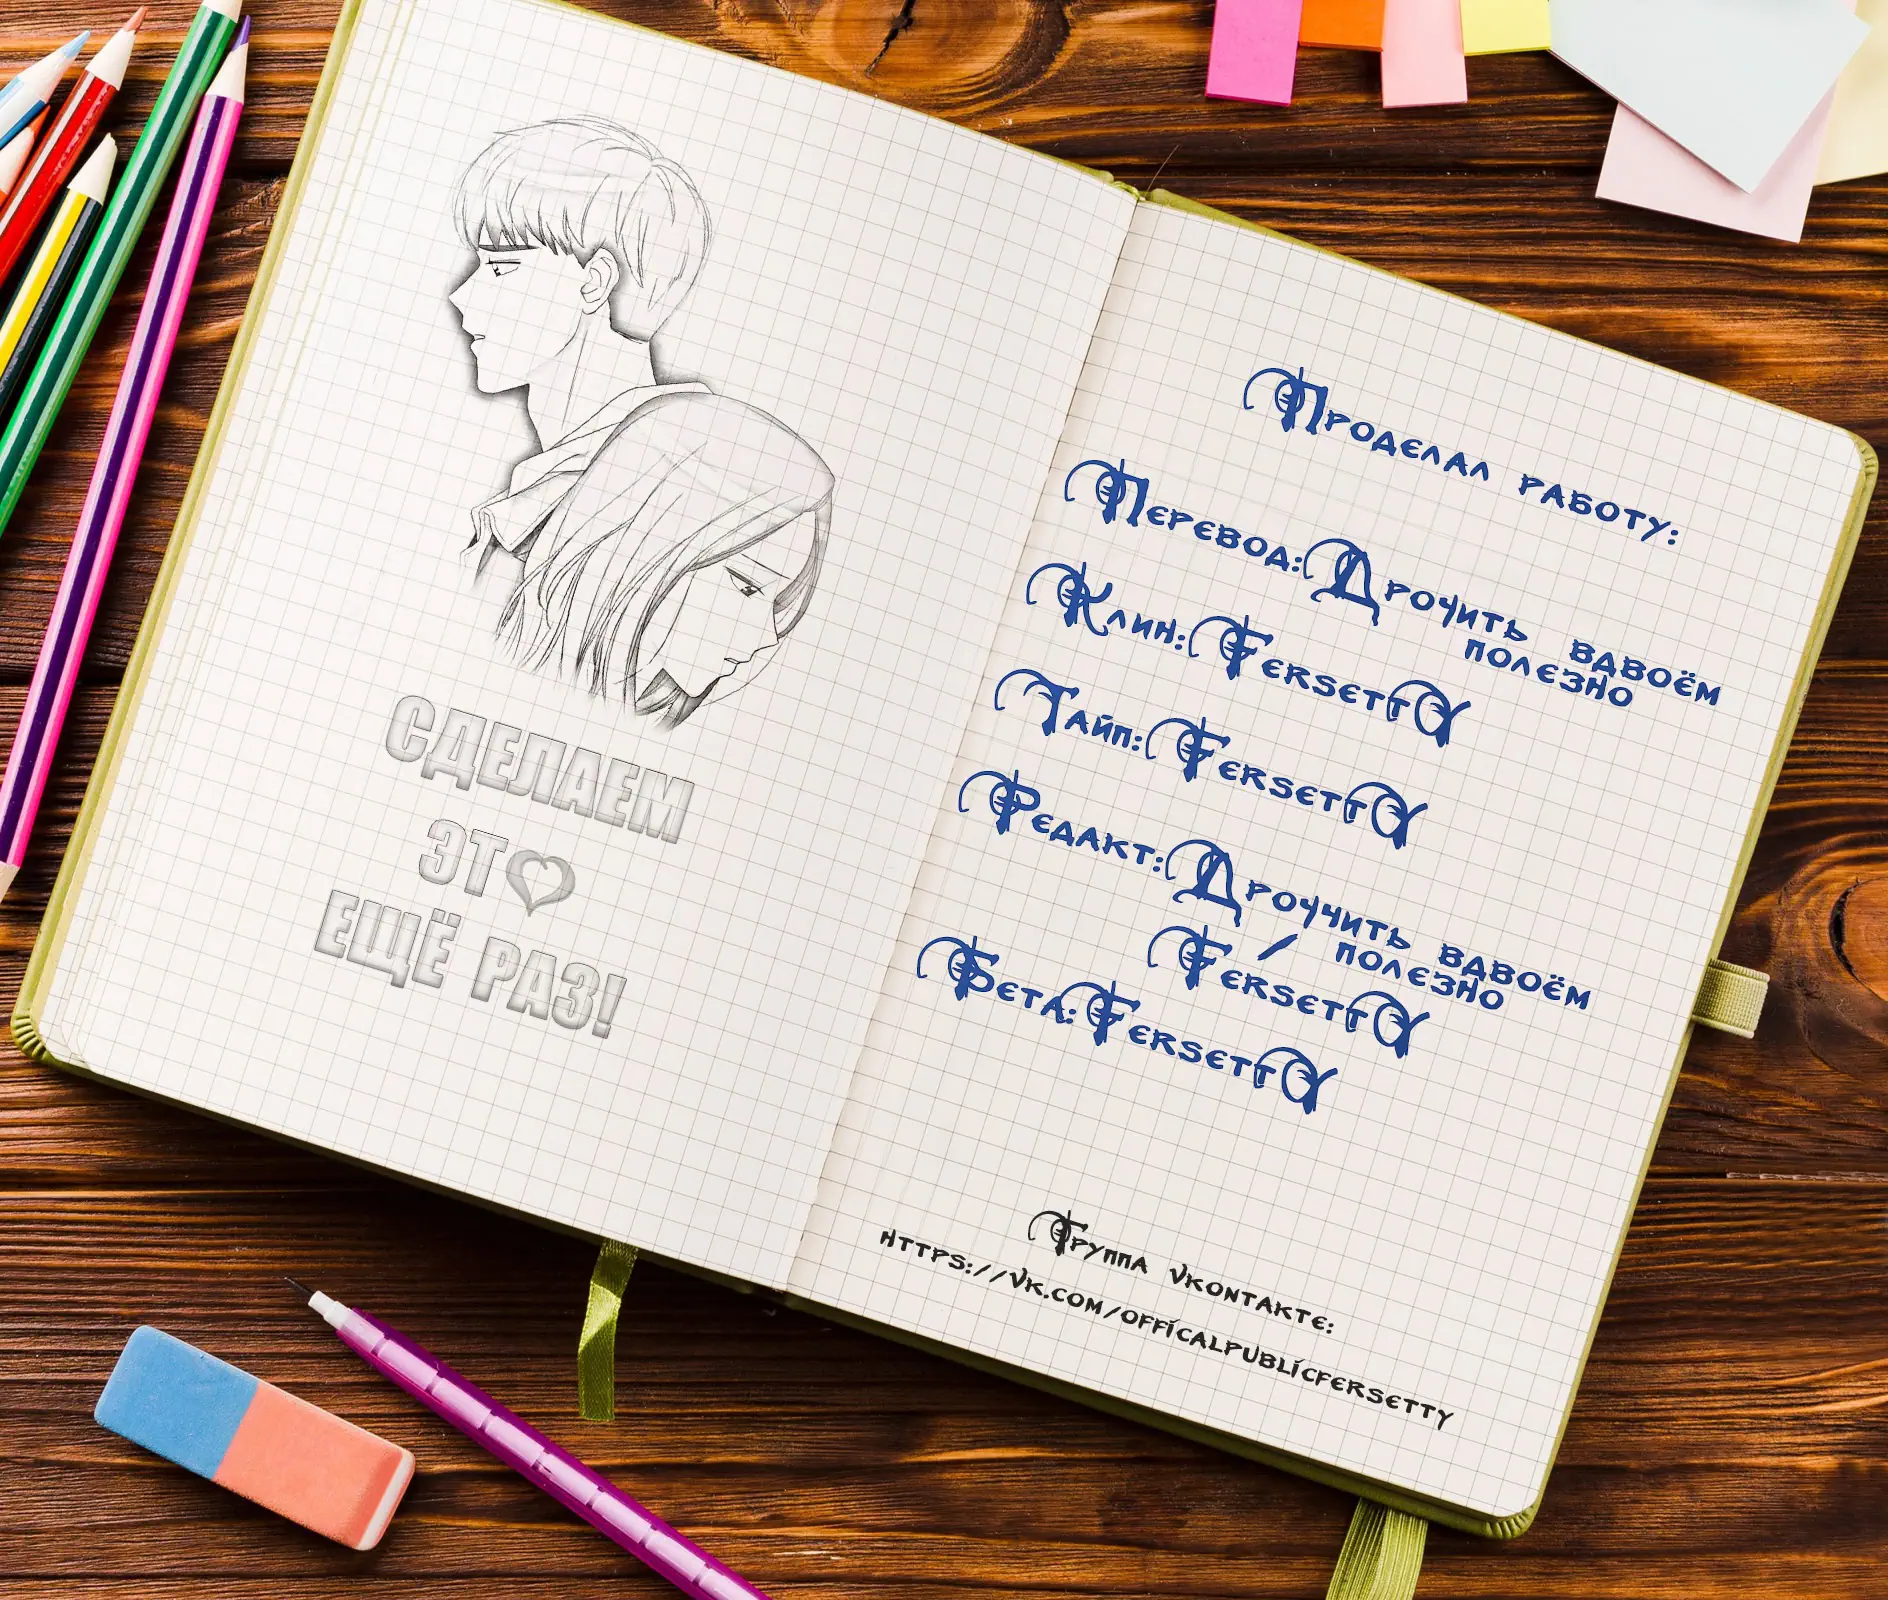 СДЕЛАЕМ
ЭТ♥
ЕЩЁ РАЗ!
Проделал работу:
Перевод: Дрочить вдвоём
полезно
Клин: FersettY
Тайп: FersettY
Редакт: Дроччить вдвоём
/ полезно
FersettY
Бета: FersettY
Группа vkontakte:
https://vk.com/officalpublicfersetty